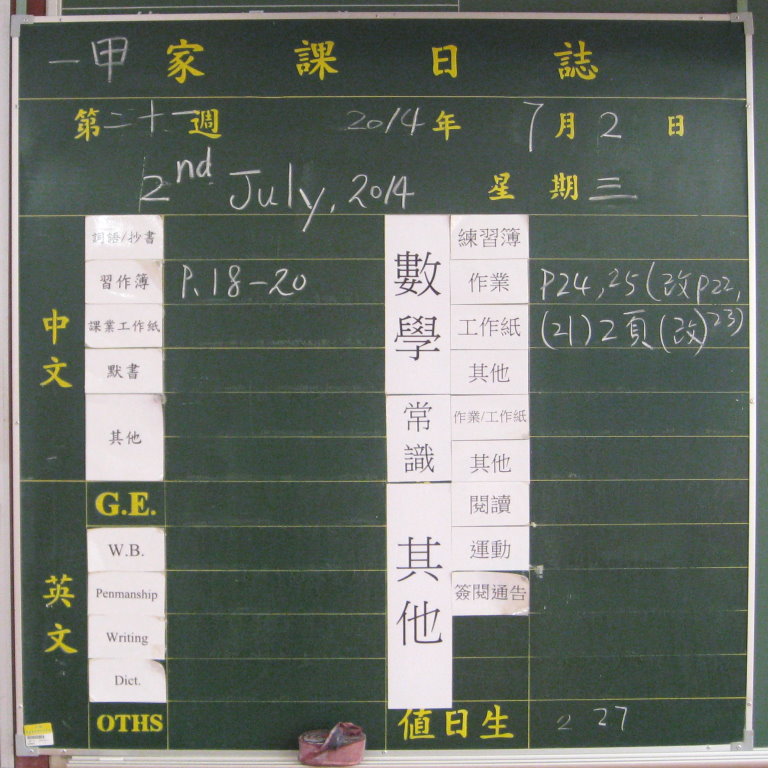 一甲家課日誌
第二十一週 2014年 7月2日
2nd July, 2014 星期三
中文
詞語/抄書
習作簿 P.18-20
課業工作紙
默書
其他
英文
G.E.
W.B.
Penmanship
Writing
Dict.
OTHS
數學
練習簿
作業 P24,25(改P22,23)
工作紙 (21)2頁(改)
其他
常識
作業/工作紙
其他
其他
閱讀
運動
簽閱通告
值日生 2 27